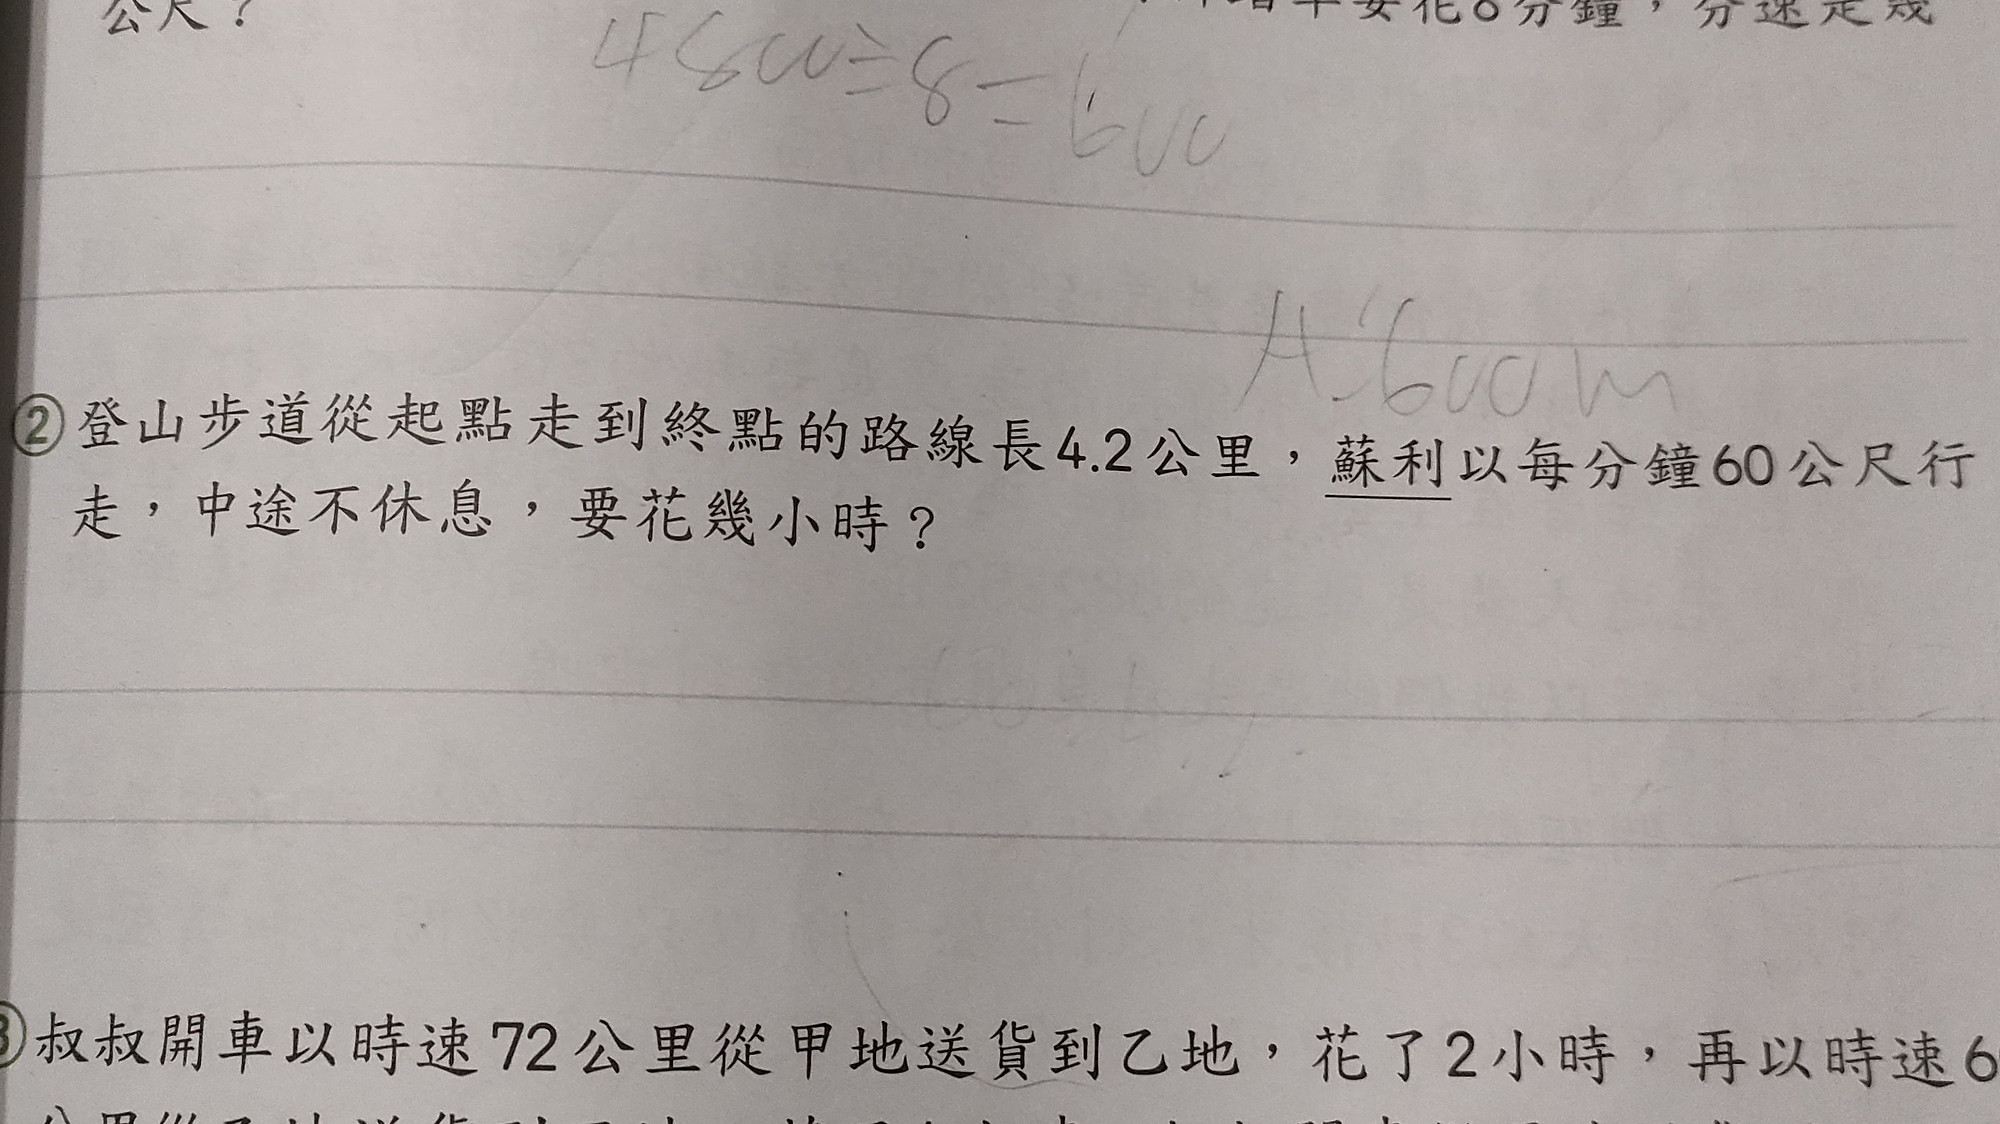 公尺？
要花8分鐘，分速是幾
4800÷8=600
A:600m
②登山步道從起點走到終點的路線長4.2公里，蘇利以每分鐘60公尺行
走，中途不休息，要花幾小時？
③叔叔開車以時速72公里從甲地送貨到乙地，花了2小時，再以時速6